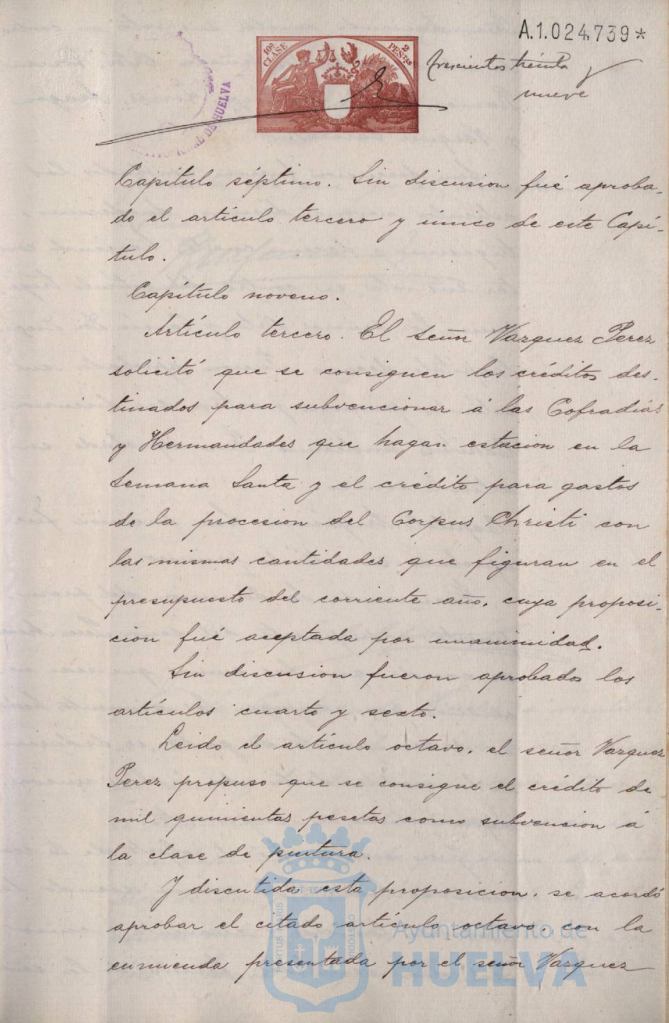 A.1.024,739*
10ª CLASE
2 PESETAS
trescientos treinta y
nueve
DE HUELVA
Capítulo séptimo. Sin discusion fué aproba-
do el artículo tercero y único de este Capí-
tulo.
Capítulo noveno.
Artículo tercero. El señor Vazquez Perez
solicitó que se consiguen los créditos des-
tinados para subvencionar á las Cofradias
y Hermandades que hagan estacion en la
Semana Santa y el crédito para gastos
de la procesion del Corpus Christi con
las mismas cantidades que figuran en el
presupuesto del corriente año, cuya proposi-
cion fué aceptada por unanimidad.
Sin discusion fueron aprobados los
artículos cuarto y sexto.
Leido el artículo octavo, el señor Vazquez
Perez propuso que se consigue el crédito de
mil quinientas pesetas como subvension á
la clase de pintura.
Y discutida esta proposicion, se acordó
aprobar el citado artículo octavo, con la
enmienda presentada por el señor Vazquez
Ayuntamiento de
HUELVA